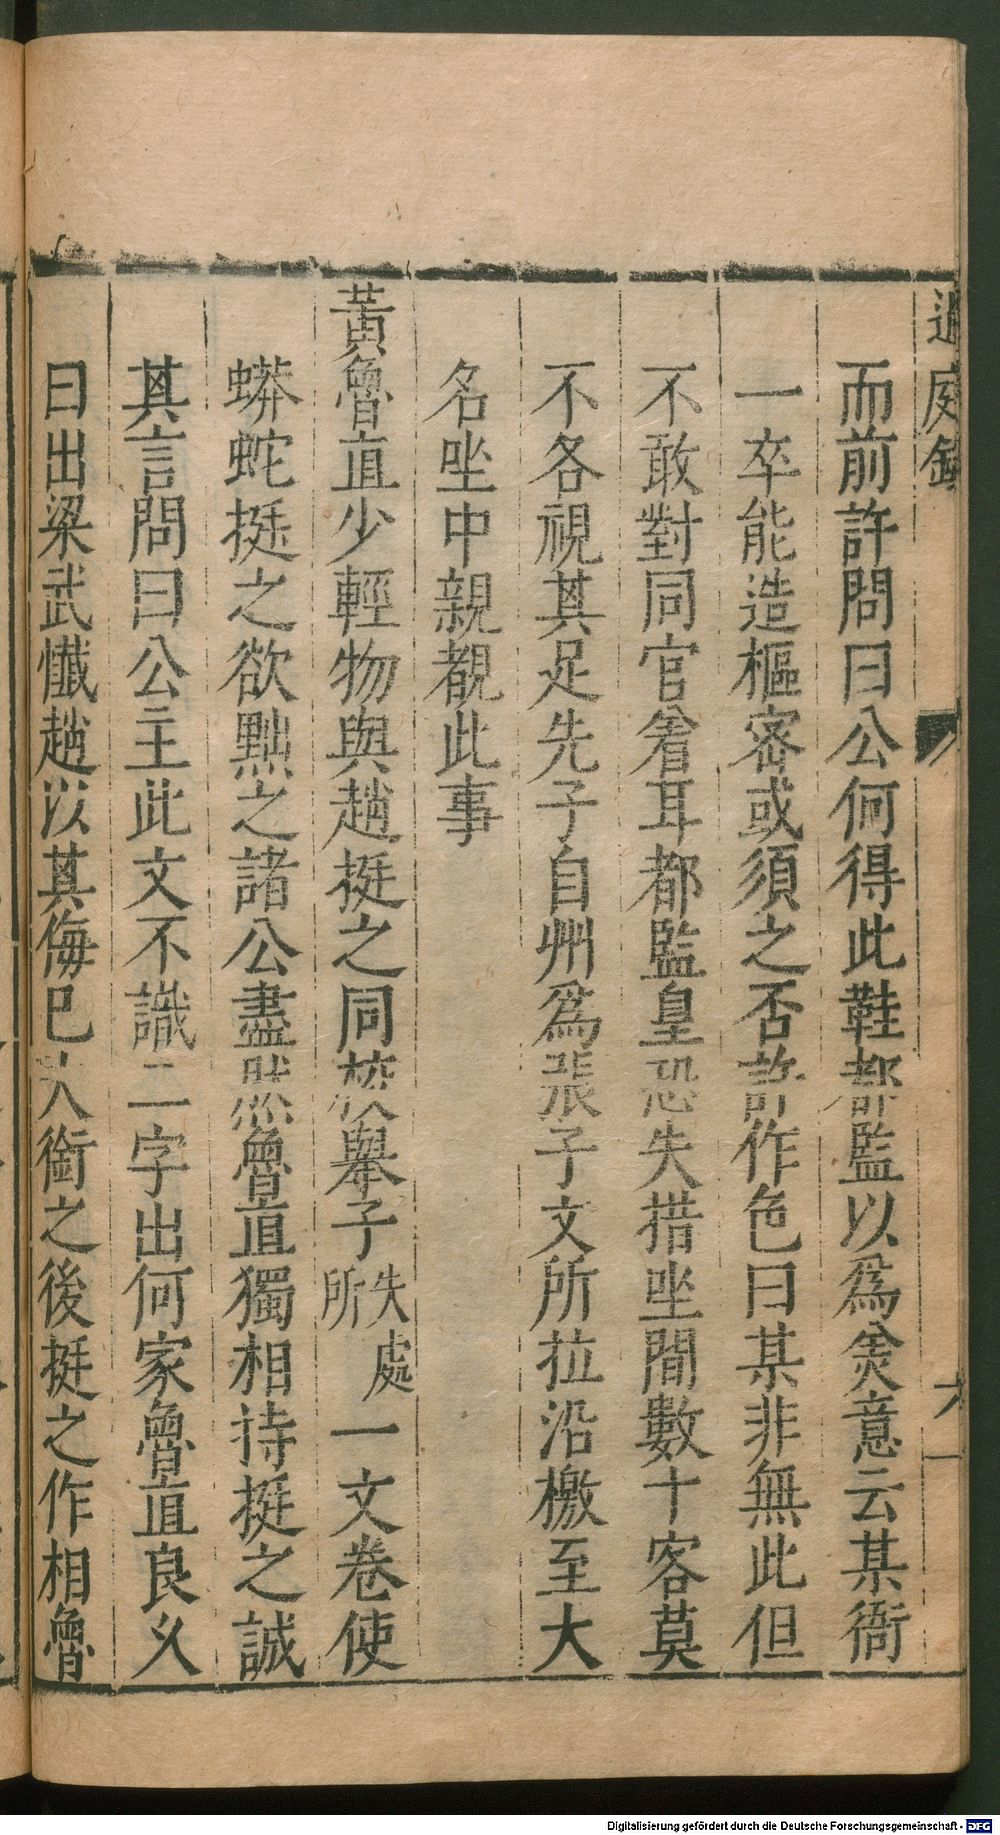 過庭錄
六
而前許問曰公何得此鞋都監以爲羡意云某衙
一卒能造樞密或須之否許作色曰某非無此但
不敢對同官着耳都監皇恐失措坐間數十客莫
不各視其足先子自州爲張子文所拉沿檄至大
名坐中親覩此事
黃魯直少輕物與趙挺之同校舉子失處所一文卷使
蟒蛇挺之欲黜之諸公盡然魯直獨相持挺之誠
其言問曰公主此文不識二字出何家魯直良乆
曰出梁武懺趙以其侮巳大銜之後挺之作相魯
Digitalisierung gefördert durch die Deutsche Forschungsgemeinschaft - DFG